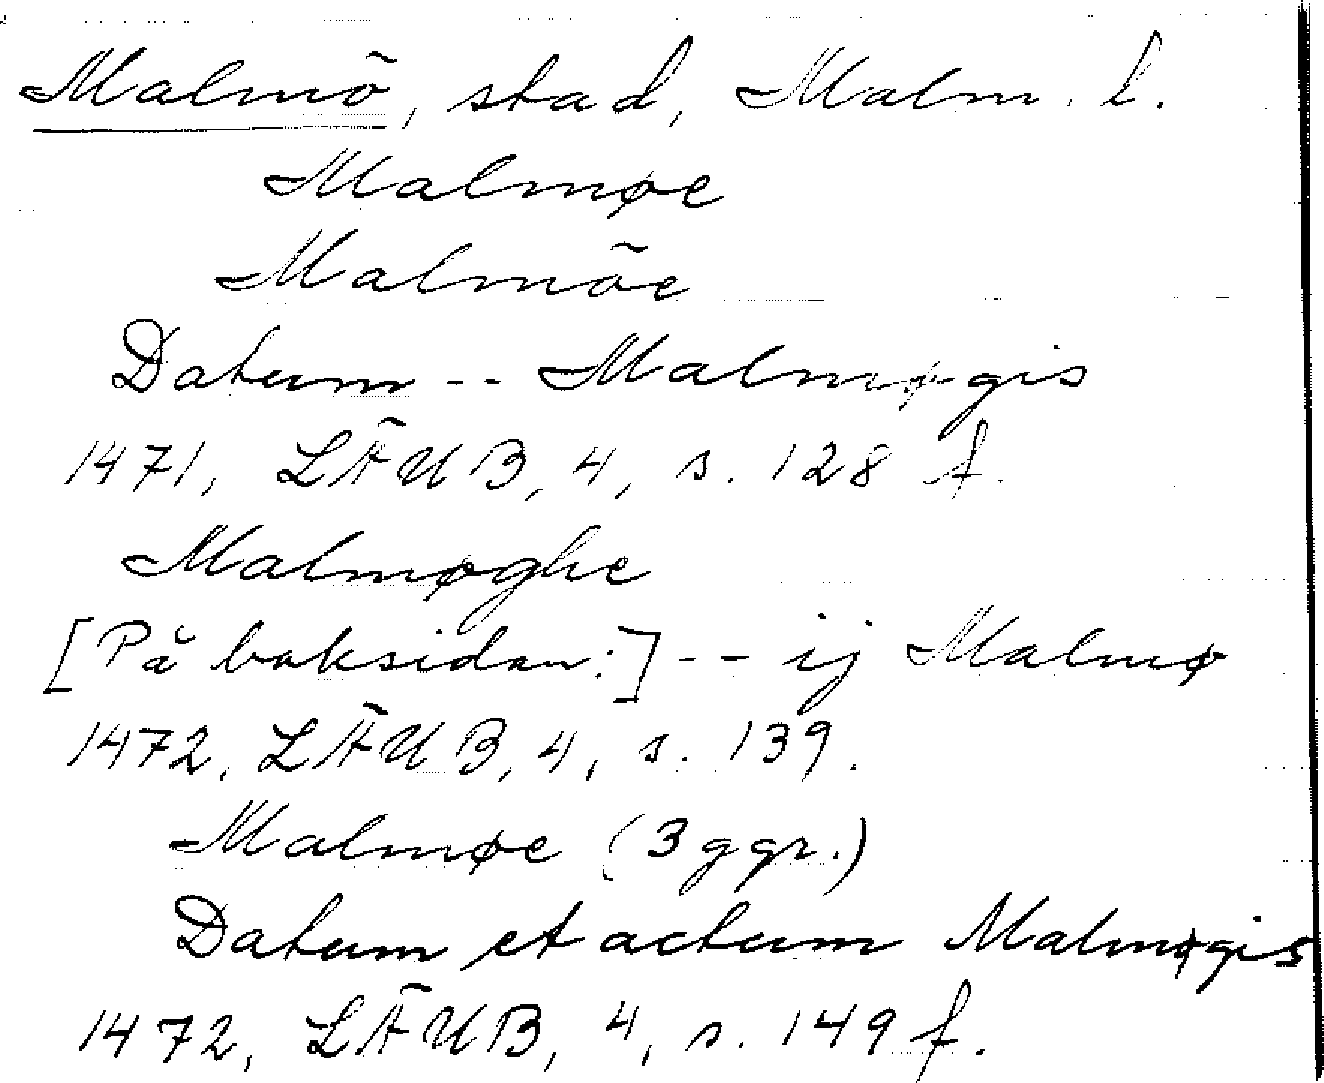 Malmö, stad, Malm. l.
Malmøe
Malmöe
Datum -- Malmøgis
1471, LÄUB, 4, s. 128 f.
Malmøghe
[På baksidan:] -- ij Malmø
1472, LÄUB, 4, s. 139.
Malmøe (3 ggr.)
Datum et actum Malmøgis
1472, LÄUB, 4, s. 149 f.